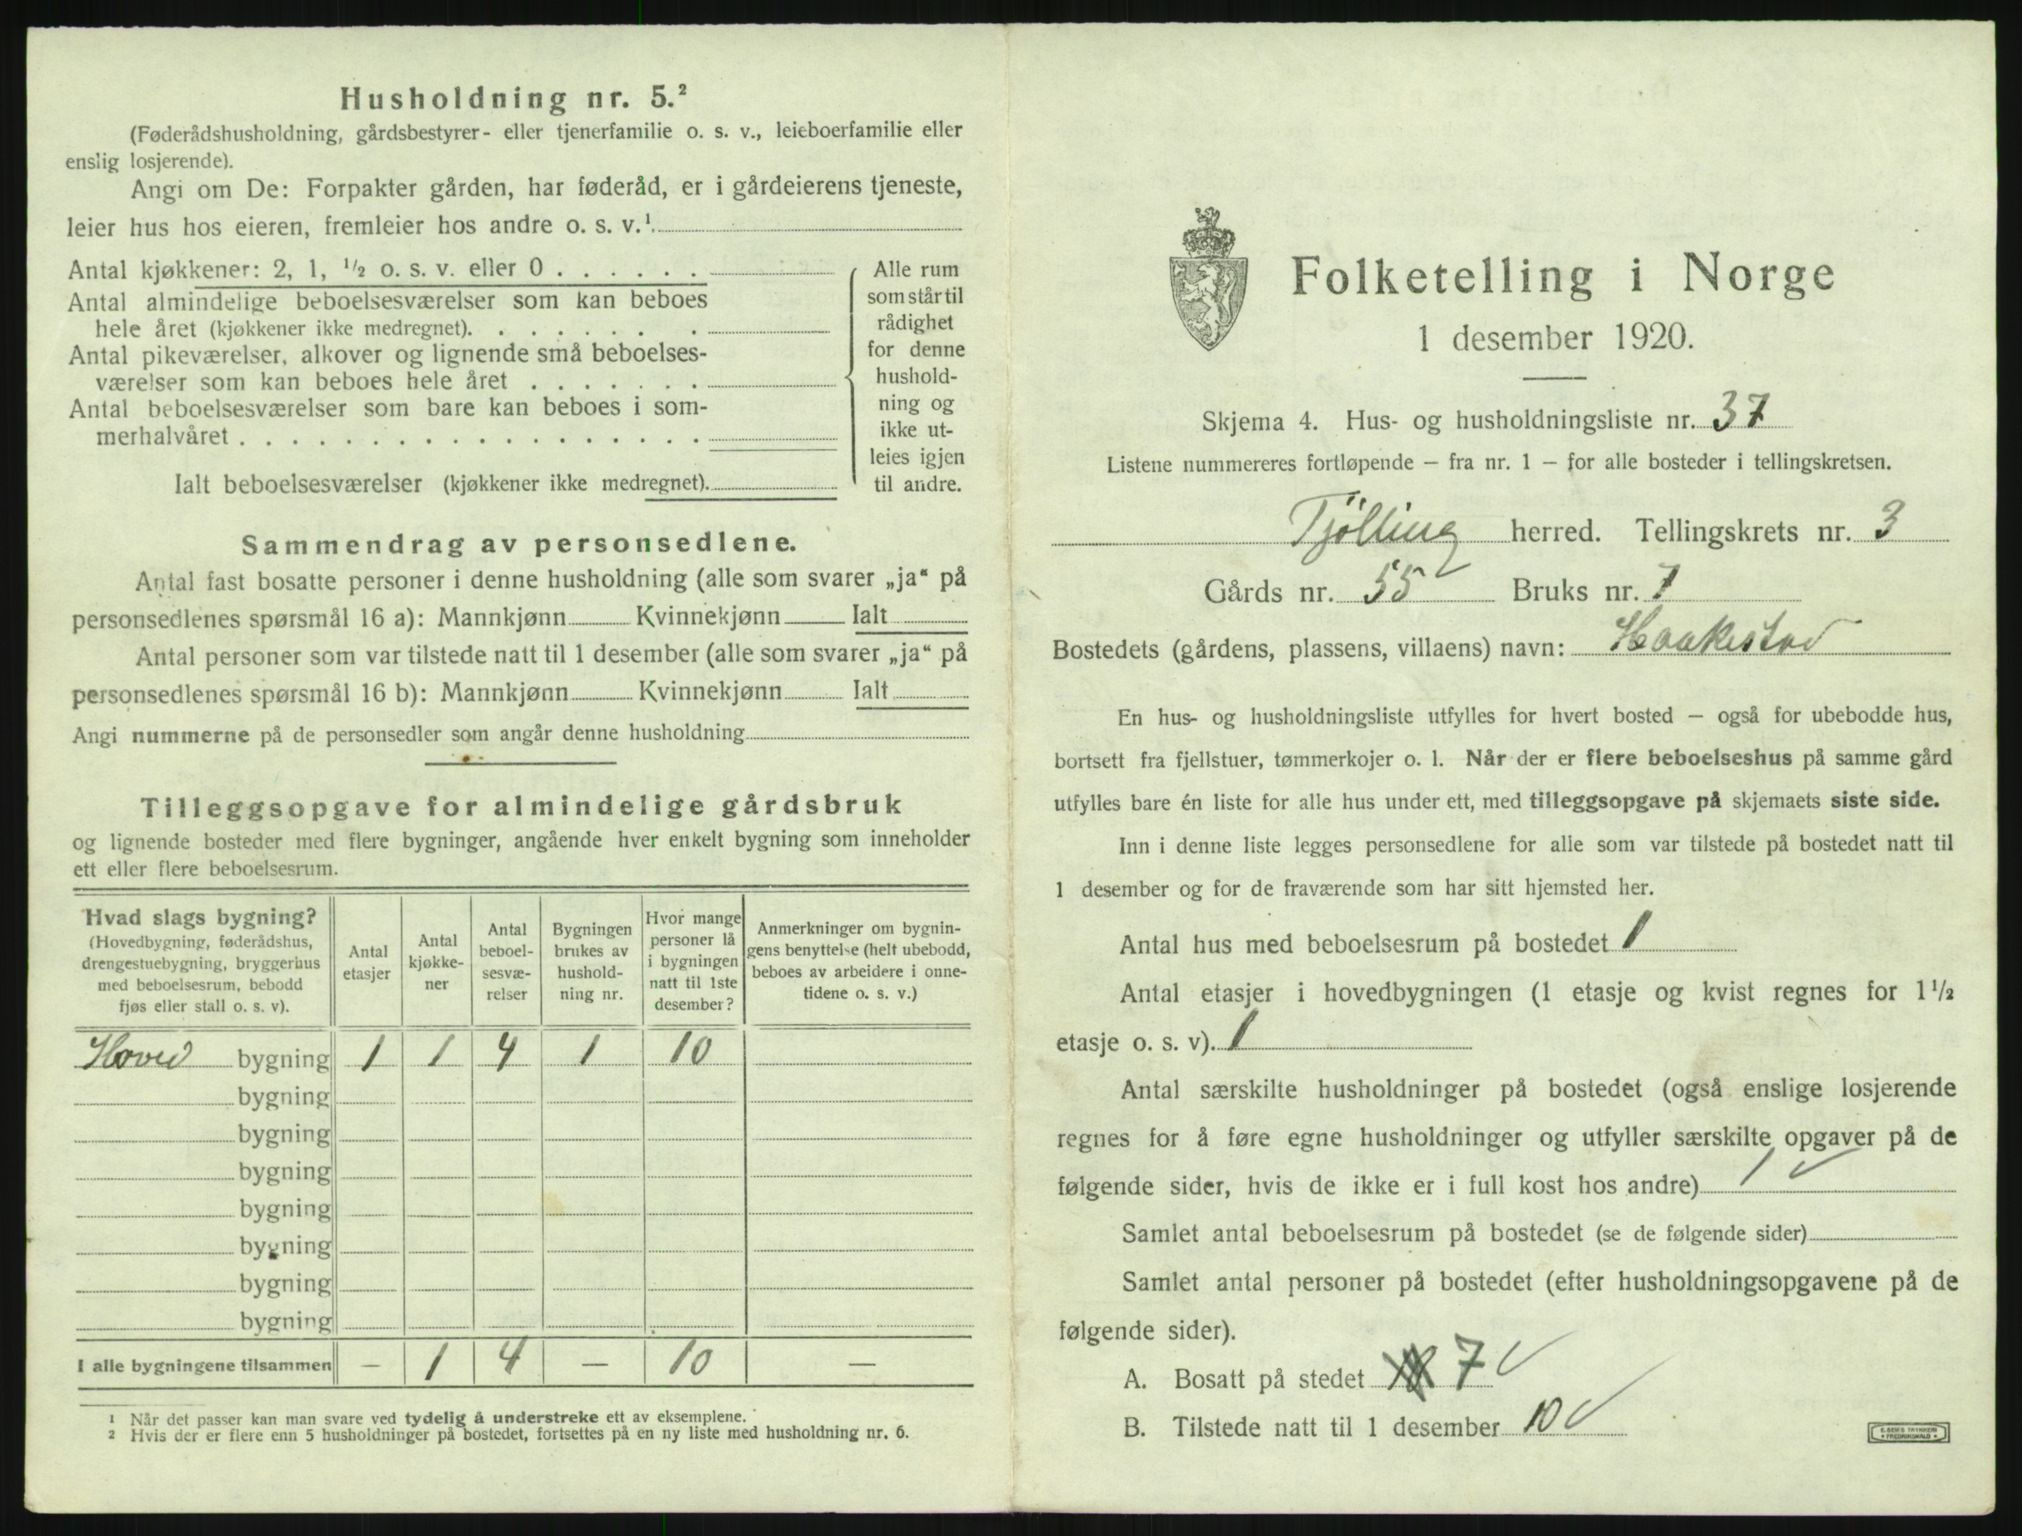 Husholdning nr. 5.²
(Føderådshusholdning, gårdsbestyrer- eller tjenerfamilie o. s. v., leieboerfamilie eller
enslig losjerende).
Angi om De: Forpakter gården, har føderåd, er i gårdeierens tjeneste,
leier hus hos eieren, fremleier hos andre o. s. v.¹
Antal kjøkkener: 2, 1, ½ o. s. v. eller 0 . . . . . .
Antal almindelige beboelsesværelser som kan beboes
hele året (kjøkkener ikke medregnet). . . . . . . .
Antal pikeværelser, alkover og lignende små beboelses-
værelser som kan beboes hele året . . . . . . .
Antal beboelsesværelser som bare kan beboes i som-
merhalvåret . . . . . . . . . . . . . . . . . .
Ialt beboelsesværelser (kjøkkener ikke medregnet).
Alle rum
som står til
rådighet
for denne
hushold-
ning og
ikke ut-
leies igjen
til andre.
Sammendrag av personsedlene.
Antal fast bosatte personer i denne husholdning (alle som svarer „ja“ på
personsedlenes spørsmål 16 a): Mannkjønn Kvinnekjønn Ialt
Antal personer som var tilstede natt til 1 desember (alle som svarer „ja“ på
personsedlenes spørsmål 16 b): Mannkjønn Kvinnekjønn Ialt
Angi nummerne på de personsedler som angår denne husholdning
Tilleggsopgave for almindelige gårdsbruk
og lignende bosteder med flere bygninger, angående hver enkelt bygning som inneholder
ett eller flere beboelsesrum.
Hvad slags bygning?
(Hovedbygning, føderådshus,
drengestuebygning, bryggerhus
med beboelsesrum, bebodd
fjøs eller stall o. s. v).
Antal
etasjer
Antal
kjøkke-
ner
Antal
beboel-
sesvæ-
relser
Bygningen
brukes av
hushold-
ning nr.
Hvor mange
personer lå
i bygningen
natt til 1ste
desember?
Anmerkninger om bygnin-
gens benyttelse (helt ubebodd,
beboes av arbeidere i onne-
tidene o. s. v.)
Hoved bygning 1 1 4 1 10
bygning
bygning
bygning
bygning
bygning
bygning
bygning
I alle bygningene tilsammen — 1 4 — 10 —
¹ Når det passer kan man svare ved tydelig å understreke ett av eksemplene.
² Hvis der er flere enn 5 husholdninger på bostedet, fortsettes på en ny liste med husholdning nr. 6.
Folketelling i Norge
1 desember 1920.
Skjema 4. Hus- og husholdningsliste nr. 37
Listene nummereres fortløpende – fra nr. 1 – for alle bosteder i tellingskretsen.
Tjølling herred. Tellingskrets nr. 3
Gårds nr. 55 Bruks nr. 7
Bostedets (gårdens, plassens, villaens) navn: Haakestad
En hus- og husholdningsliste utfylles for hvert bosted – også for ubebodde hus,
bortsett fra fjellstuer, tømmerkojer o. l. Når der er flere beboelseshus på samme gård
utfylles bare én liste for alle hus under ett, med tilleggsopgave på skjemaets siste side.
Inn i denne liste legges personsedlene for alle som var tilstede på bostedet natt til
1 desember og for de fraværende som har sitt hjemsted her.
Antal hus med beboelsesrum på bostedet 1
Antal etasjer i hovedbygningen (1 etasje og kvist regnes for 1½
etasje o. s. v). 1
Antal særskilte husholdninger på bostedet (også enslige losjerende
regnes for å føre egne husholdninger og utfyller særskilte opgaver på de
følgende sider, hvis de ikke er i full kost hos andre) 1 ✓
Samlet antal beboelsesrum på bostedet (se de følgende sider)
Samlet antal personer på bostedet (efter husholdningsopgavene på de
følgende sider).
A. Bosatt på stedet 7 ✓
B. Tilstede natt til 1 desember 10 ✓